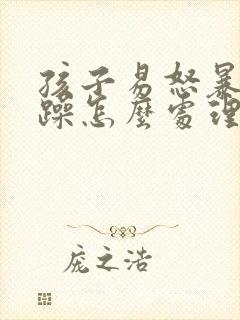 孩子易怒暴
躁怎麽處理
庞之浩